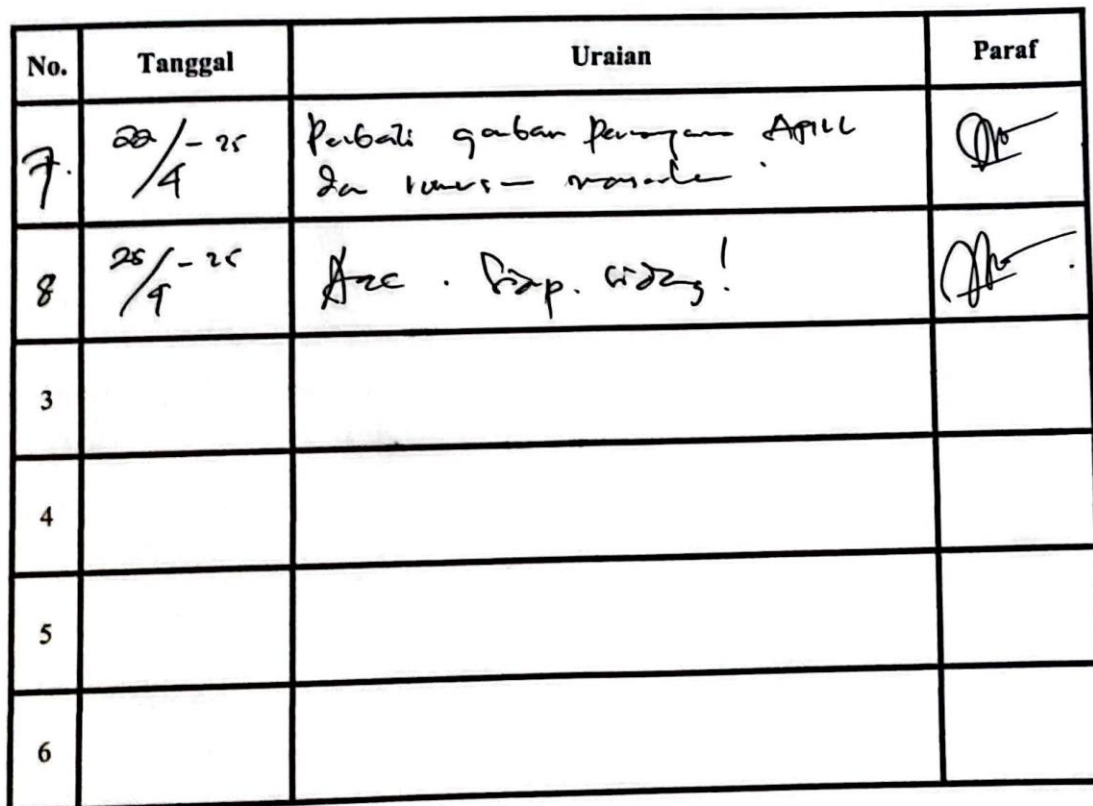 No. Tanggal Uraian Paraf
7. 22/4 - 25 Perbaiki gambar APILL
dan rumusan masalah
8 25/4 - 25 Acc. Siap. sidang!
3
4
5
6